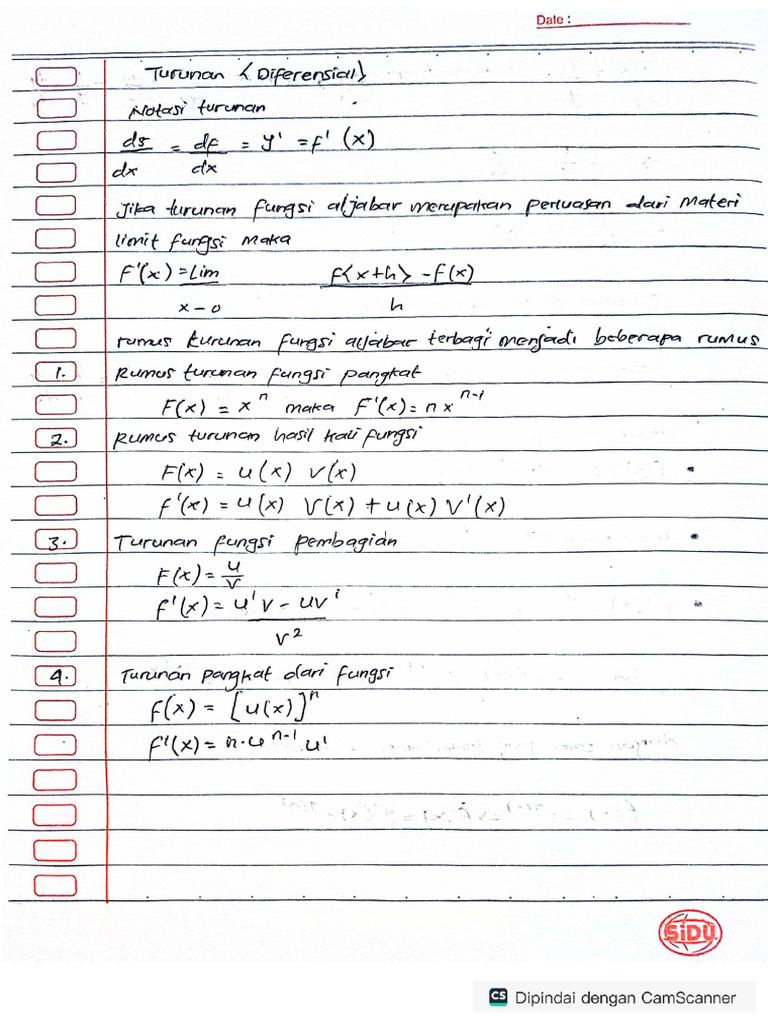 Date :
Turunan (Diferensial)
Notasi turunan
ds/dx = df/dx = y' = f' (x)
Jika turunan fungsi aljabar merupakan perluasan dari Materi
limit fungsi maka
F'(x) = Lim x-0 F(x+h) - f(x) / h
rumus turunan fungsi aljabar terbagi menjadi beberapa rumus
1. Rumus turunan fungsi pangkat
F(x) = x^n maka F'(x) = nx^n-1
2. Rumus turunan hasil kali fungsi
F(x) = u(x) v(x)
f'(x) = u(x) V(x) + u(x) V'(x)
3. Turunan fungsi pembagian
F(x) = u/v
f'(x) = u'v - uv' / v²
4. Turunan pangkat dari fungsi
f(x) = [u(x)]^n
f'(x) = n.u^n-1 u'
SiDU
CS Dipindai dengan CamScanner